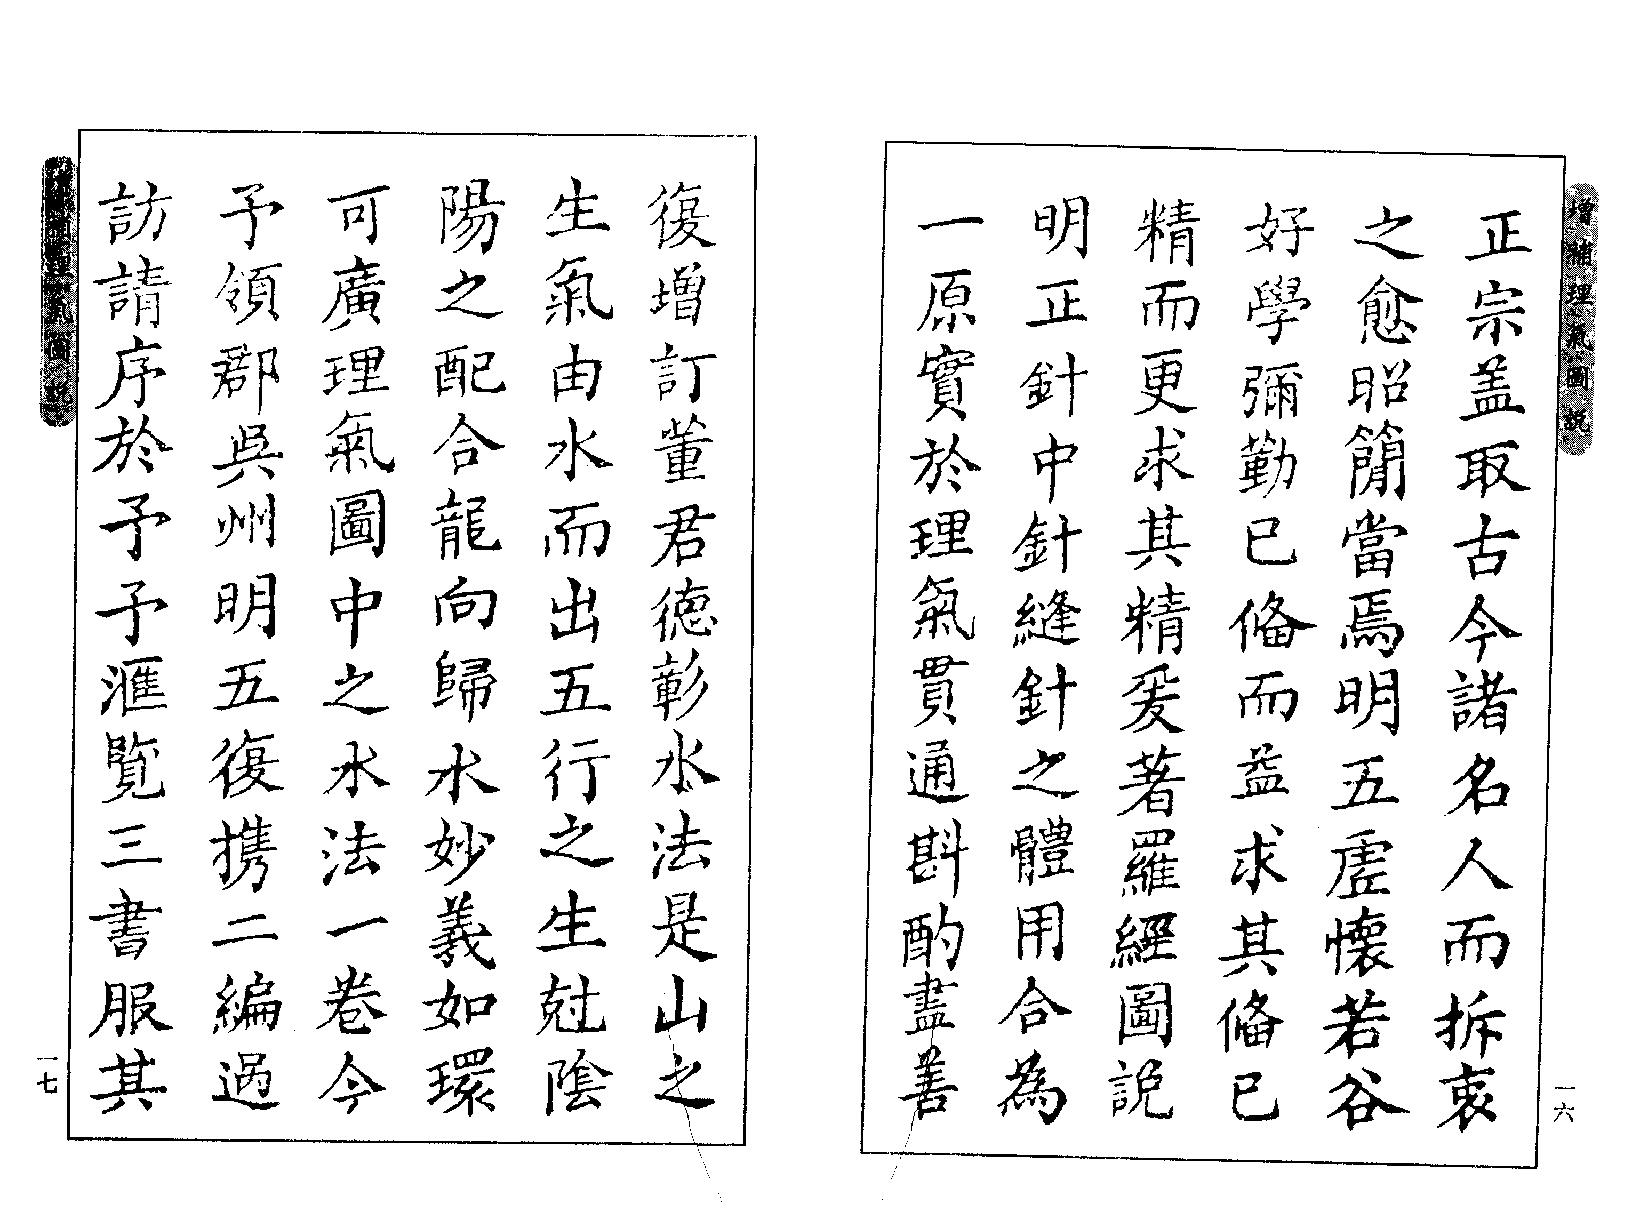 增補理氣圖說
正宗盖取古今諸名人而拆衷
之愈昭簡當焉明五虛懷若谷
好學彌勤已俻而益求其俻已
精而更求其精爰著羅經圖說
明正針中針縫針之體用合為
一原實於理氣貫通斟酌盡善
一六
增補理氣圖說
復增訂董君德彰水法是山之
生氣由水而出五行之生尅陰
陽之配合龍向歸水妙義如環
可廣理氣圖中之水法一卷今
予領郡吳州明五復携二編過
訪請序於予予滙覽三書服其
一七